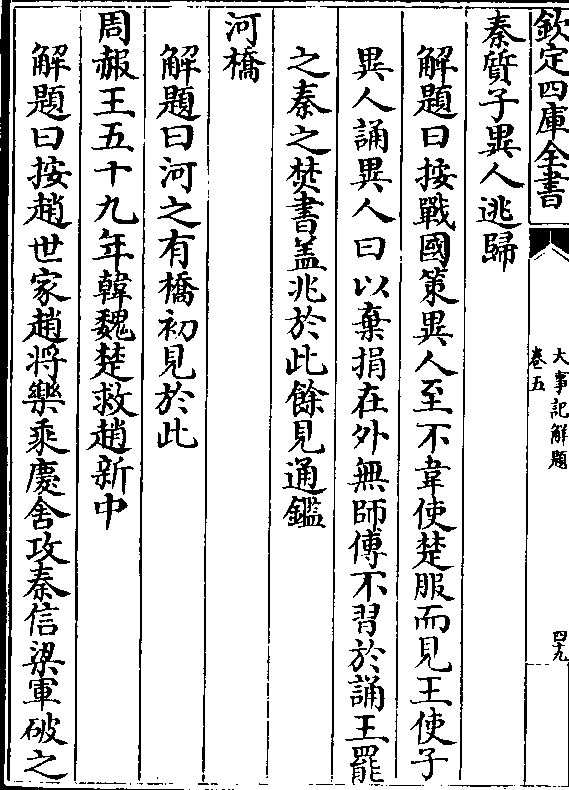 欽定四庫全書
大事記解題
卷五
四九
秦質子異人逃歸
解題曰按戰國策異人至不韋使楚服而見王使子
異人誦異人曰以棄捐在外無師傅不習於誦王罷
之秦之焚書盖兆於此餘見通鑑
河橋
解題曰河之有橋初見於此
周赧王五十九年韓魏楚救趙新中
解題曰按趙世家趙將樂乘慶舍攻秦信梁軍破之